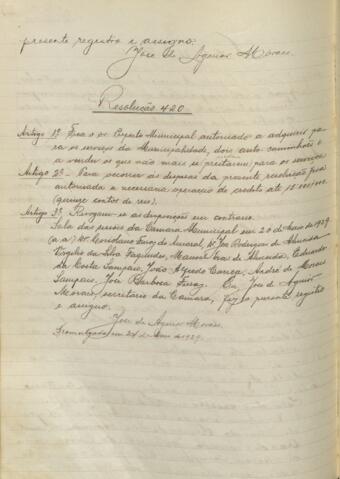 presente registro e assigno.
José de Aguiar Moraes.
Resolução 420
Artigo 1º Fica o sr. Prefeito Municipal autorisado a adquirir pa-
ra os serviços da Municipalidade, dois auto caminhões e
a vender os que não mais se prestarem para os serviços
Artigo 2º - Para occorrer ás despesas da presente resolução fica
autorisada a necessaria operação de credito até 15:000$000
(quinze contos de reis).
Artigo 3º Revogam-se as disposições em contrario.
Sala das sessões da Camara Municipal em 20 de maio de 1929.
(a.a) Dr. Coriolano Ferraz do Amaral, Dr. José Rodrigues de Almeida
Virgilio da Silva Fagundes, Manoel de Almeida, Eduardo
da Costa Sampaio, João Correa, André de Moraes
Sampaio, José Barbosa Ferraz. Eu, José de Aguiar
Moraes, secretario da Camara, fiz o presente registro
e assigno.
José de Aguiar Moraes.
Promulgada em 24 de 1929.